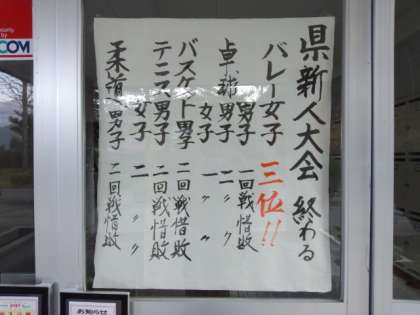 県新人大会 終わる
バレー女子 三位!!
男子 一回戦惜敗
卓球男子 二〃〃
女子 一〃〃
バスケット男子 二回戦惜敗
テニス男子 二回戦惜敗
女子 二〃〃
柔道男子 二回戦惜敗
COM
お知らせ